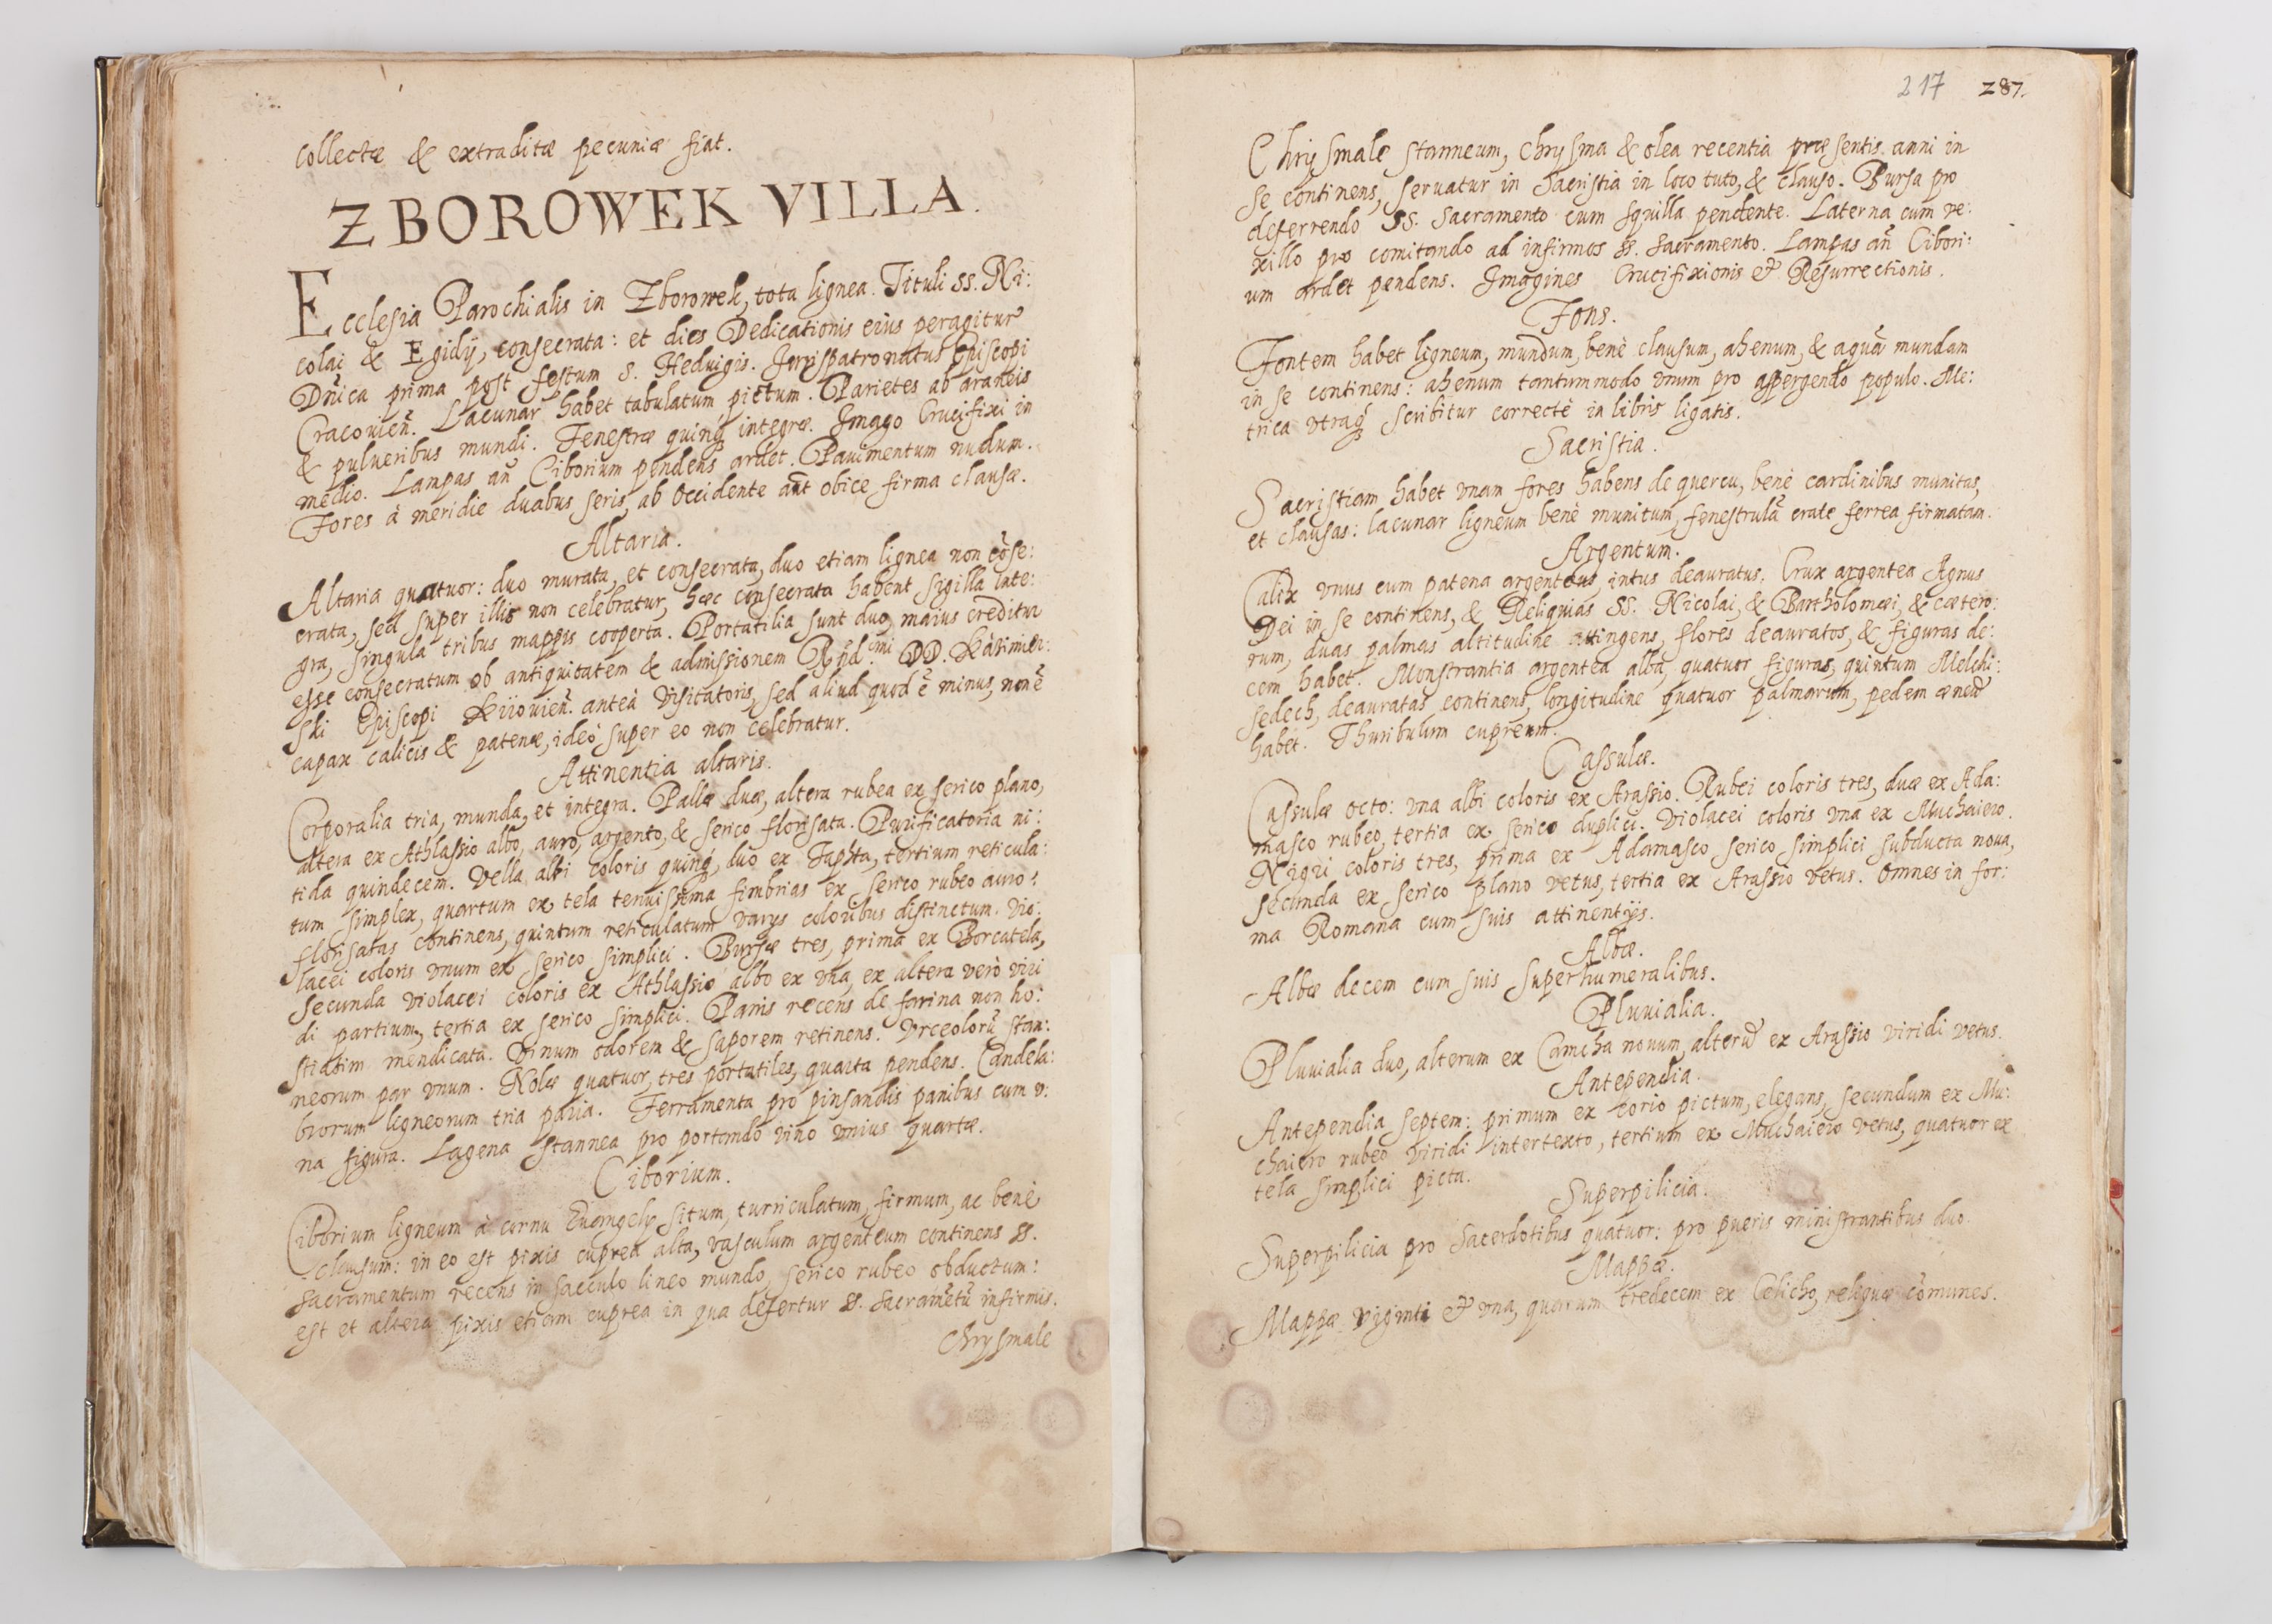 collectæ & extraditæ pecuniæ fiat.
ZBOROWEK VILLA.
Ecclesia Parochialis in Zborowek, tota lignea. Tituli SS. Ni:
colai & Egidÿ, consecrata: et dies Dedicationis eius peragitur
Dñica prima post festum S. Heduigis. Jurispatronatus Episcopi
Cracouieñ. Lacunar habet tabulatum pictum. Parietes ab araneis
& pulueribus mundi. Fenestræ quinq3 integræ. Imago Crucifixi in
medio. Lampas añ Ciborium pendens ardet. Pauimentum nudum.
Fores à meridie duabus seris, ab Occidente aũt obice firma clausæ.
Altaria.
Altaria quatuor: duo murata, et consecrata, duo etiam lignea non cõse:
crata, sed super illis non celebratur, hæc consecrata habent sigilla inte:
gra, singula tribus mappis cooperta. Portatilia sunt duo, maius creditur
esse consecratum ob antiquitatem & admissionem Rṽd.mi DD. Kazimier:
ski Episcopi Kiiouieñ. anteà Visitatoris, sed aliud quod ẽ minus, non ẽ
capax calicis & patenæ, ideò super eo non celebratur.
Attinentia altaris.
Corporalia tria, munda, et integra. Pallæ duæ, altera rubea ex serico plano,
altera ex Athlassio albo, auro, argento, & serico florisata. Purificatoria ni:
tida quindecem. Vella albi coloris quinq3, duo ex Taphta, tertium reticula:
tum simplex, quartum ex tela tenuissima fimbrias ex serico rubeo auro:
florisatas continens, quintum reticulatum varys coloribus distinctum. Vio:
lacei coloris vnum ex serico simplici. Bursæ tres, prima ex Borcatela,
Secunda violacei coloris ex Athlassio albo ex vna, ex altera verò viri
di partium, tertia ex serico simplici. Panis recens de farina non ho:
stiatim mendicata. Vinum odorem & saporem retinens. Vrceolorũ stan:
neorum par vnum. Nolæ quatuor, tres portatiles, quarta pendens. Candela:
brorum ligneorum tria paria. Ferramenta pro pinsandis panibus cum v:
na figura. Lagena stannea pro portando vino vnius quartæ.
Ciborium.
Ciborium ligneum à cornu Euangely situm, turriculatum, firmum, ac benè
clausum: in eo est pixis cuprea alta, vasculum argenteum continens SS.
Sacramentum recens in sacculo lineo mundo, serico rubeo obductum:
est et altera pixis etiam cuprea in qua defertur SS. Sacramẽtũ infirmis.
Chrysmale
217 287.
Chrysmale stanneum, Chrysma & olea recentia præsentis anni in
se continens, seruatur in Sacristia in loco tuto, & clauso. Bursa pro
deferrendo SS. Sacramento cum squilla pendente. Laterna cum ve:
xillo pro comitando ad infirmos SS. Sacramento. Lampas añ Cibori:
um ardet pendens. Imagines Crucifixionis et Resurrectionis.
Fons.
Fontem habet ligneum, mundum, benè clausum, ahenum, & aquã mundam
in se continens: ahenum tantummodo vnum pro aspergendo populo. Me:
trica vtraq3 scribitur correctè in libris ligatis.
Sacristia.
Sacristiam habet vnam fores habens de quercu, benè cardinibus munitas,
et clausas: lacunar ligneum benè munitum, fenestrulã crate ferrea firmatam.
Argentum.
Calix vnus cum patena argenteus, intus deauratus. Crux argentea Agnus
Dei in se continens, & Reliquias SS. Nicolai, & Bartholomæi, & cætero:
rum, duas palmas altitudine attingens, flores deauratos, & figuras de:
cem habet. Monstrantia argentea alba, quatuor figuras, quintum Melchi:
sedech, deauratas continens, longitudine quatuor palmarum, pedem æneũ
habet. Thuribulum cupreum.
Cassulæ.
Cassulæ octo: vna albi coloris ex Arassio. Rubei coloris tres, duæ ex Ada:
masco rubeo, tertia ex serico duplici. Violacei coloris vna ex Muchaiero.
Nigri coloris tres, prima ex Adamasco serico simplici subducta noua,
secunda ex serico plano vetus, tertia ex Arassio vetus. Omnes in for:
ma Romana cum suis attinentÿs.
Albæ.
Albæ decem cum suis superhumeralibus.
Pluuialia.
Pluuialia duo, alterum ex Camcha nouum, alterũ ex Arassio viridi vetus.
Antependia.
Antependia septem: primum ex corio pictum, elegans, secundum ex Mu:
chaiero rubeo viridi intertexto, tertium ex Muchaiero vetus, quatuor ex
tela simplici picta.
Superpilicia.
Superpilicia pro Sacerdotibus quatuor: pro pueris ministrantibus duo.
Mappæ.
Mappæ viginti et vna, quarum tredecem ex Celicho, reliquæ cõmunes.